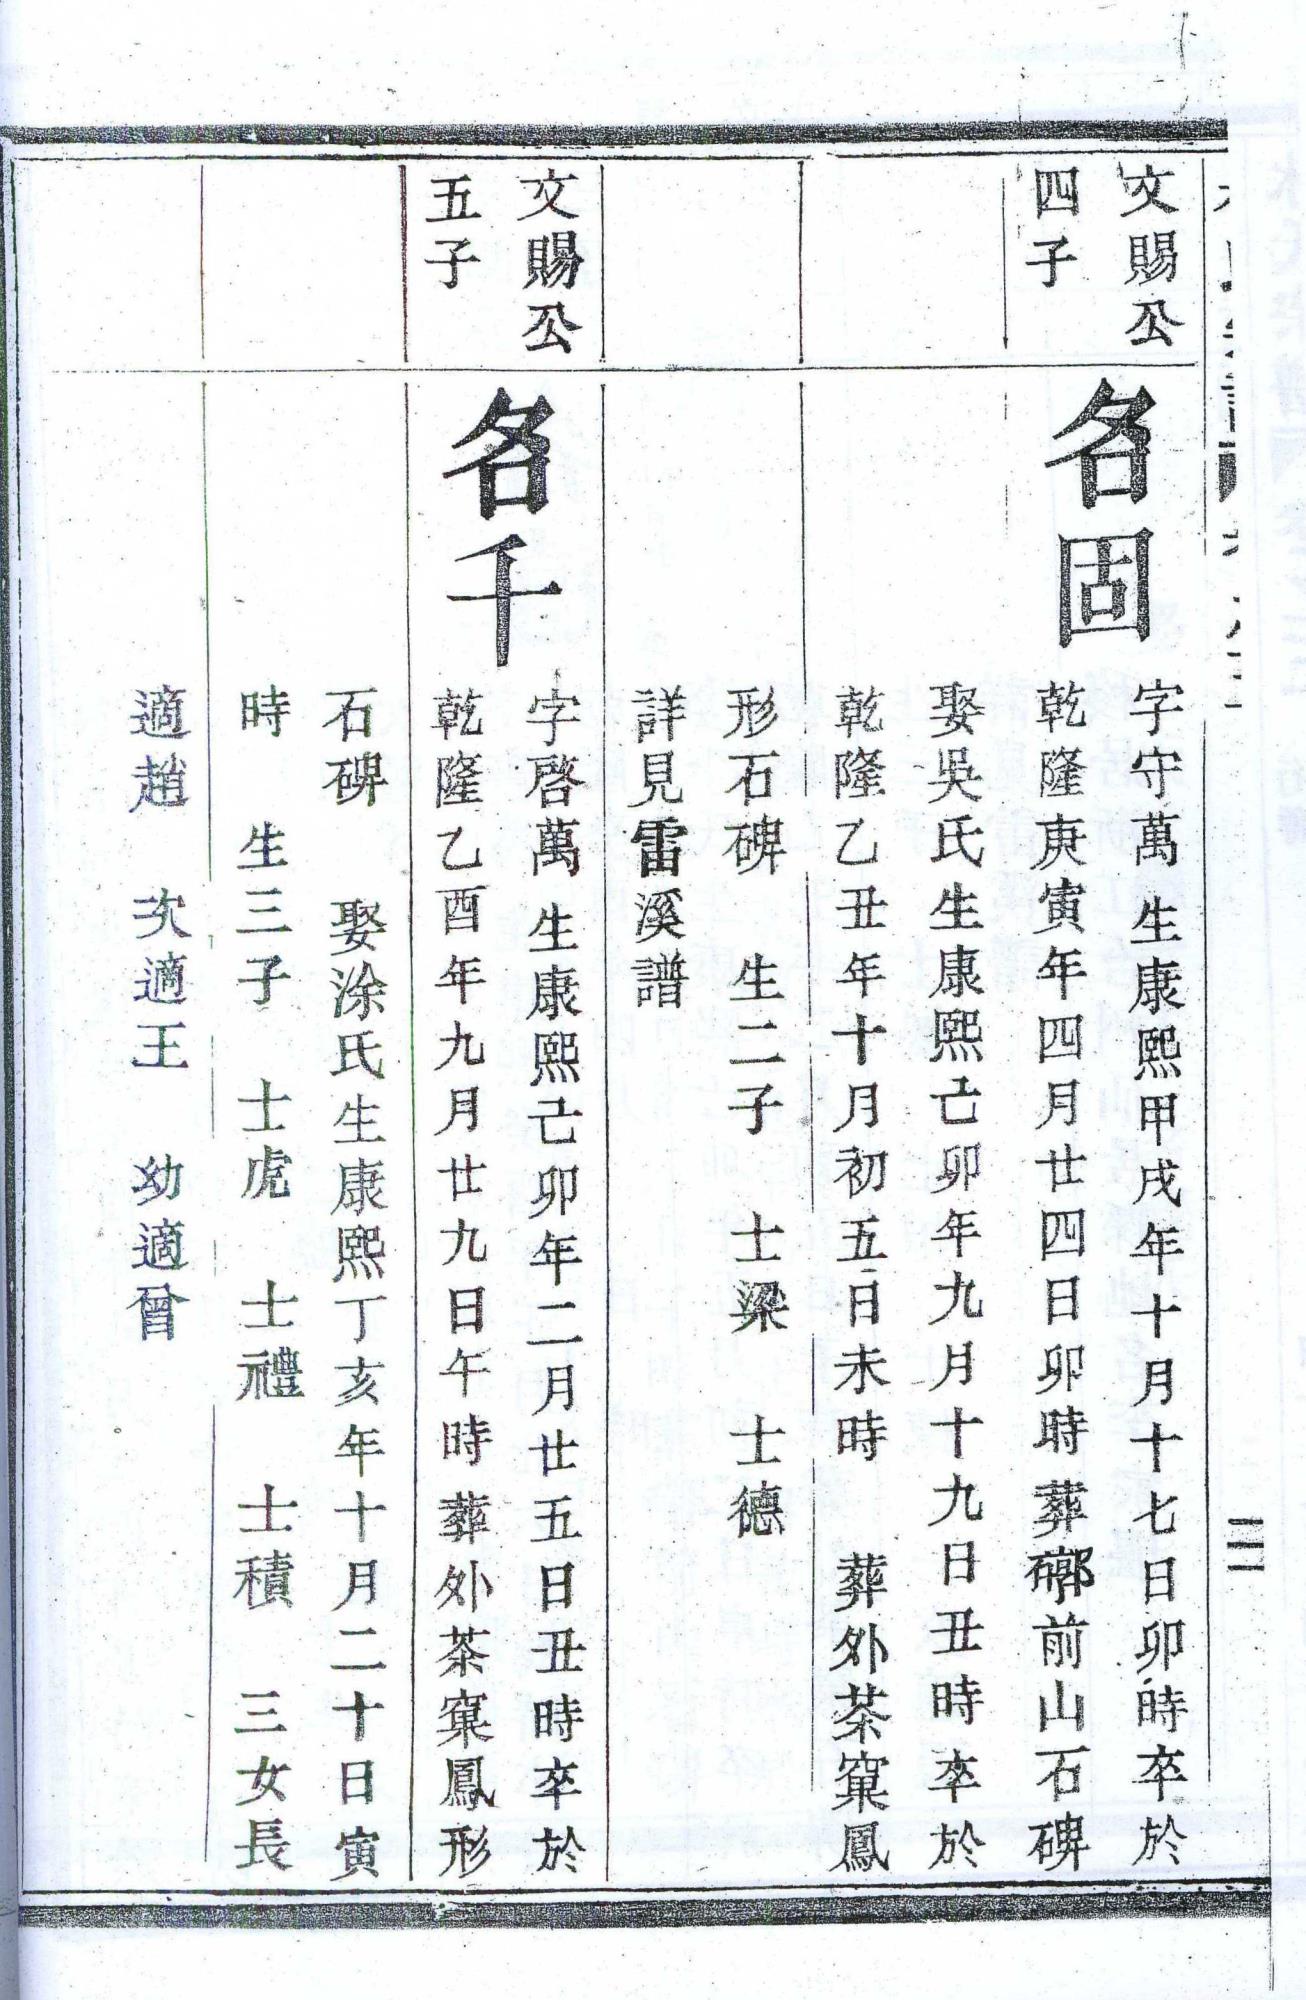 文賜公
四子
名固
字守萬 生康熙甲戌年十月十七日卯時卒於
乾隆庚寅年四月廿四日卯時葬磜前山石碑
娶吳氏生康熙己卯年九月十九日丑時卒於
乾隆乙丑年十月初五日未時 葬外茶窠鳳
形石碑 生二子 士梁 士德
詳見雷溪譜
文賜公
五子
名千
字啓萬 生康熙己卯年二月廿五日丑時卒於
乾隆乙酉年九月廿九日午時葬外茶窠鳳形
石碑 娶涂氏生康熙丁亥年十月二十日寅
時 生三子 士虎 士禮 士積 三女長
適趙 次適王 幼適曾
三